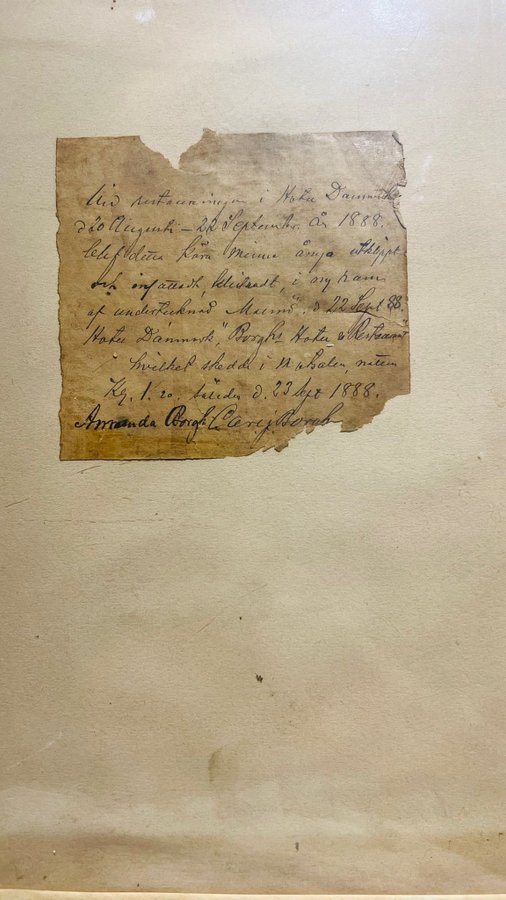 Vid restaureringen i Hotel Danmark
d 20 Augusti – 22 September År 1888.
blef detta kära minne ånyo utklippt
och infattadt, klistradt, i ny ram
af undertecknad Malmö d 22 Sept 88.
Hotel Danmark", Borghs Hotel & Restaurant"
hvilket skedde i salen, natten
Kl. 1.20. d. 23 Sept 1888.
Amanda Borgh Borgh